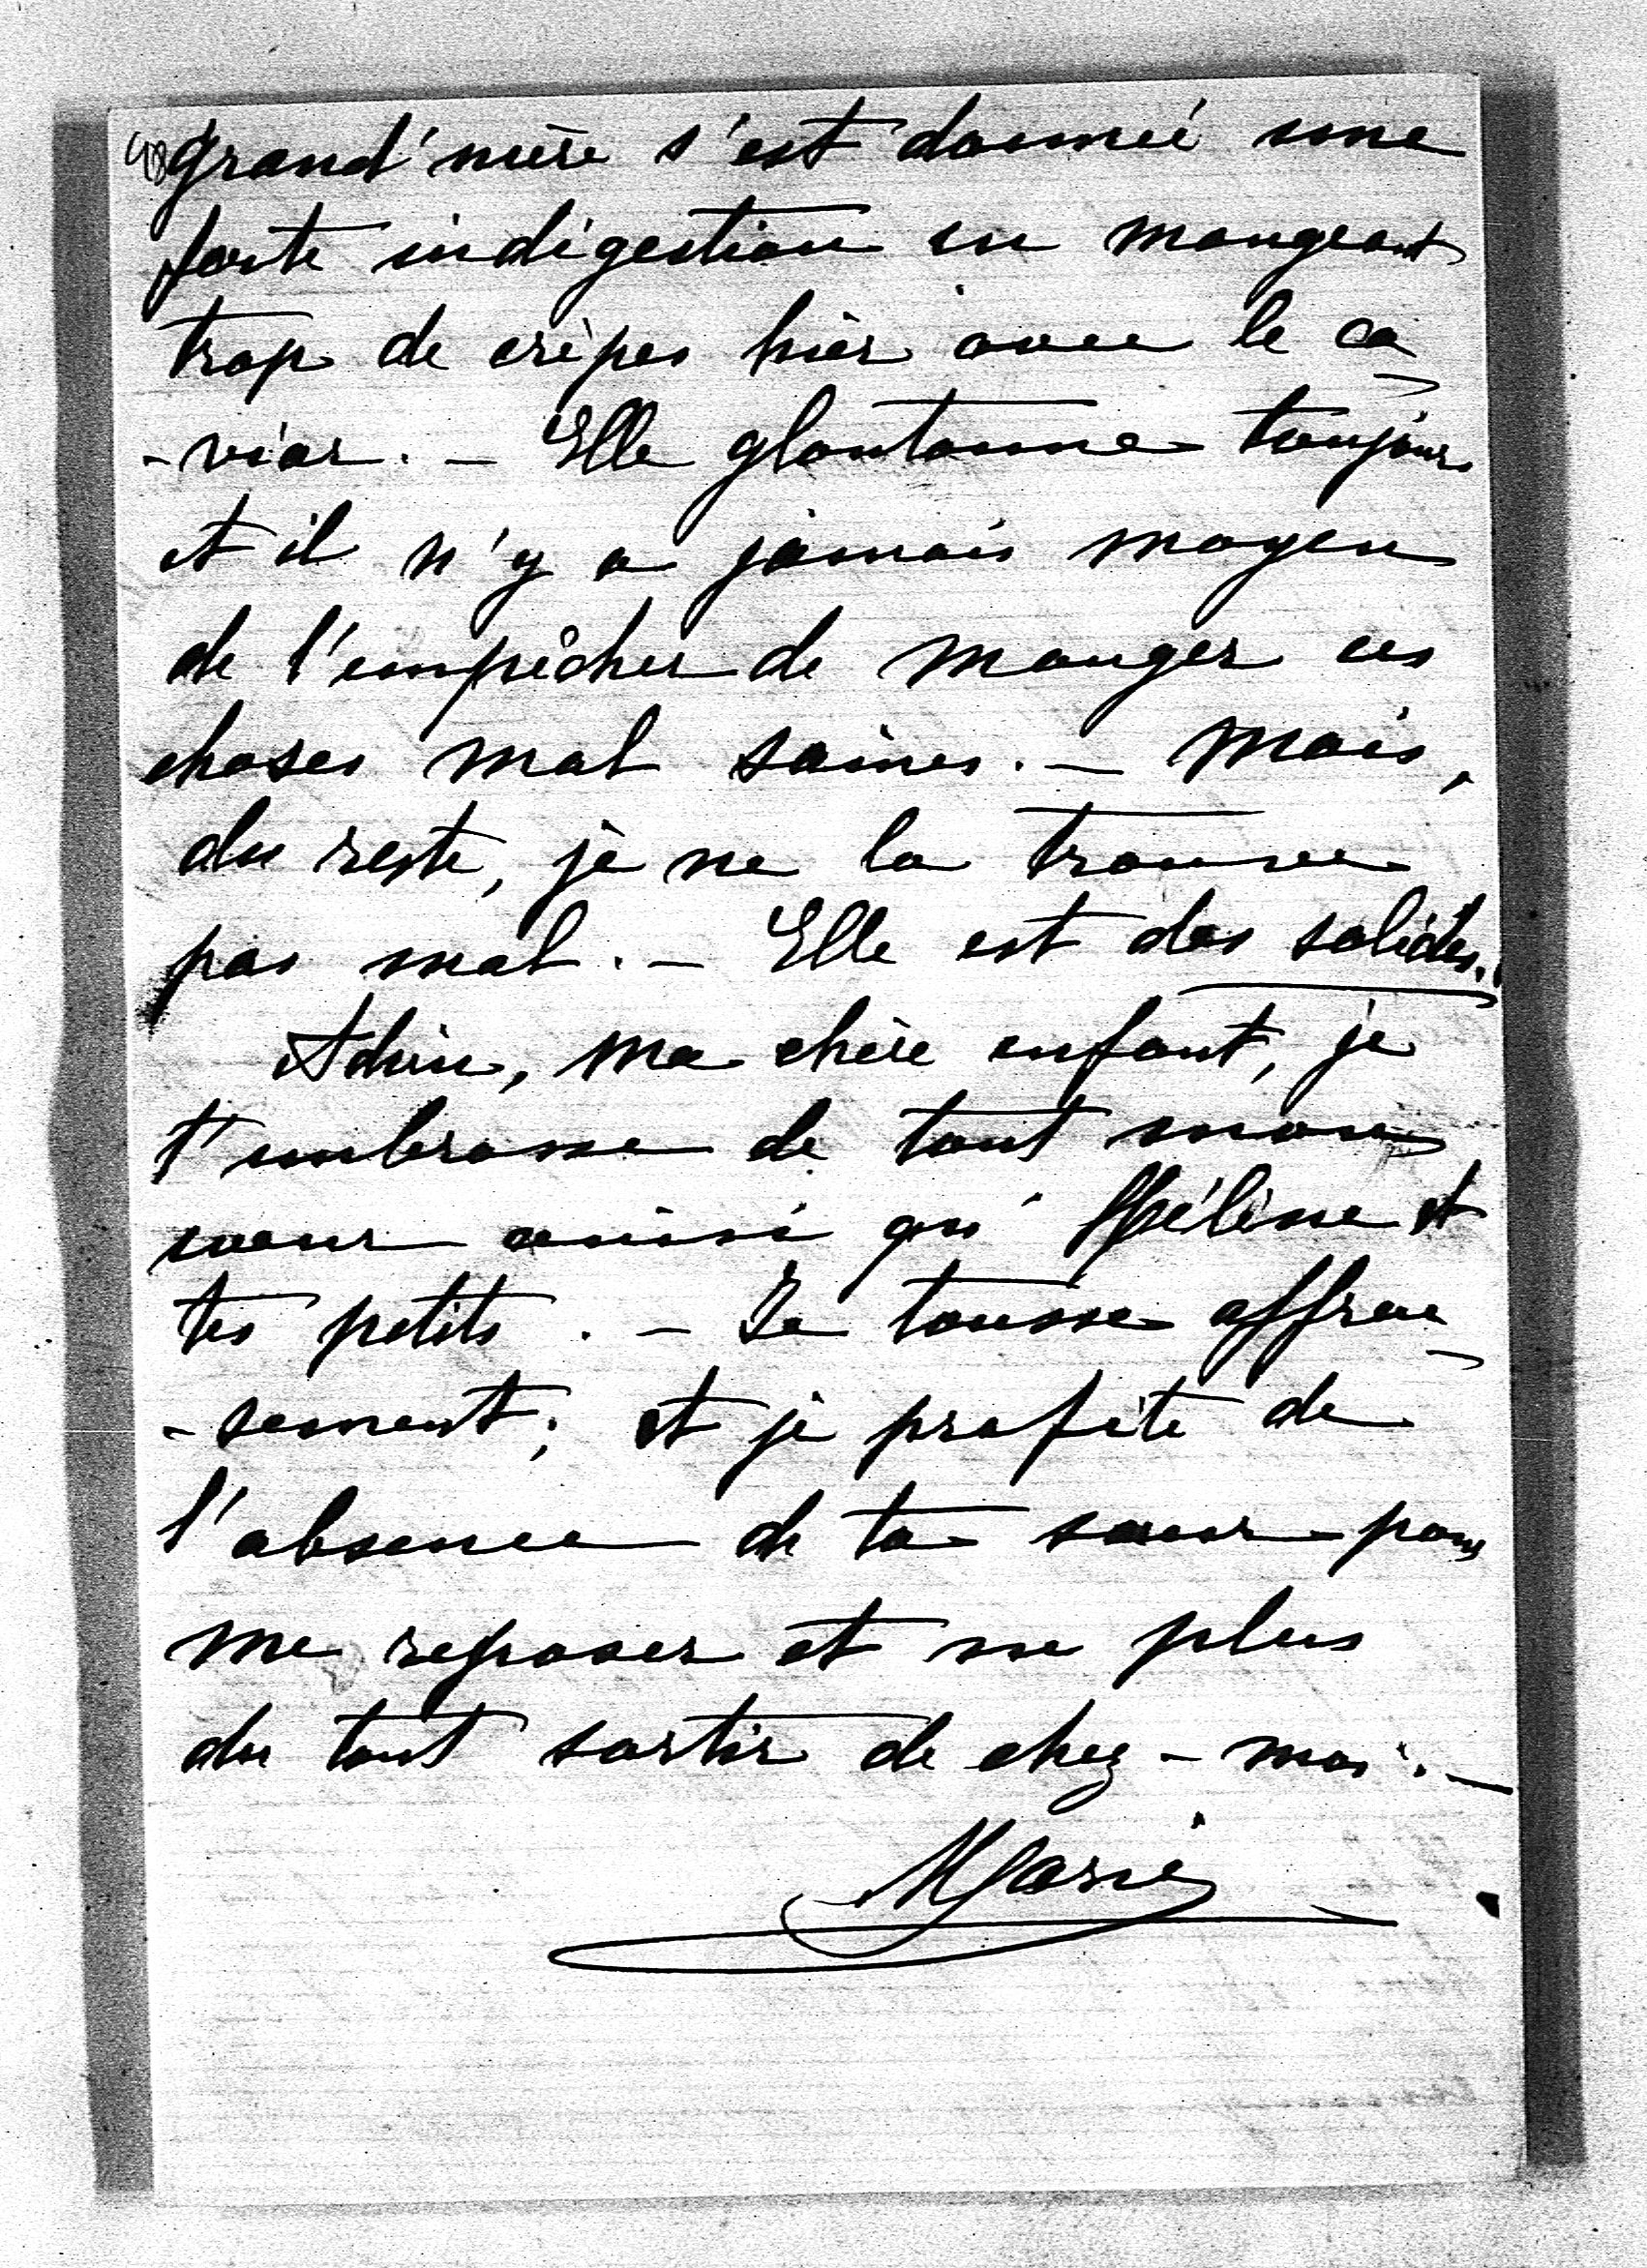 grand'mère s'est donnée une
forte indigestion en mangeant
trop de crêpes hier avec le ca
-viar. — Elle gloutonne toujours
et il n'y a jamais moyen
de l'empêcher de manger ces
choses mal saines. — Mais,
du reste, je ne la trouve
pas mal. — Elle est des solides.
Adieu, ma chère enfant, je
t'embrasse de tout mon
cœur ainsi qu'Hélène et
tes petits. — Je tousse affreu
-sement; et je profite de
l'absence de ta sœur pour
me reposer et ne plus
du tout sortir de chez-moi. —
Marie